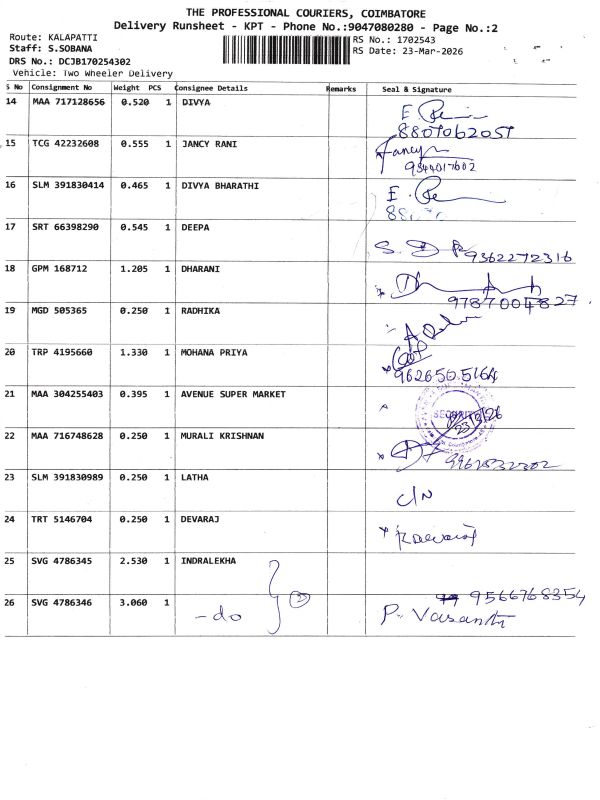 THE PROFESSIONAL COURIERS, COIMBATORE
Delivery Runsheet - KPT - Phone No.:9047080280 - Page No.:2
Route: KALAPATTI
RS No.: 1702543
Staff: S.SOBANA
RS Date: 23-Mar-2026
DRS No.: DCJB170254302
Vehicle: Two Wheeler Delivery
S No Consignment No Weight PCS Consignee Details Remarks Seal & Signature
14 MAA 717128656 0.520 1 DIVYA
8807062057
15 TCG 42232608 0.555 1 JANCY RANI Jancy
9344017602
16 SLM 391830414 0.465 1 DIVYA BHARATHI
17 SRT 66398290 0.545 1 DEEPA
9362272316
18 GPM 168712 1.205 1 DHARANI
9787004827
19 MGD 505365 0.250 1 RADHIKA
20 TRP 4195660 1.330 1 MOHANA PRIYA
9626505164
21 MAA 304255403 0.395 1 AVENUE SUPER MARKET SECURITY
23/3/26
22 MAA 716748628 0.250 1 MURALI KRISHNAN
23 SLM 391830989 0.250 1 LATHA C/N
24 TRT 5146704 0.250 1 DEVARAJ
25 SVG 4786345 2.530 1 INDRALEKHA
9566768354
26 SVG 4786346 3.060 1 -do P. Vasanthi